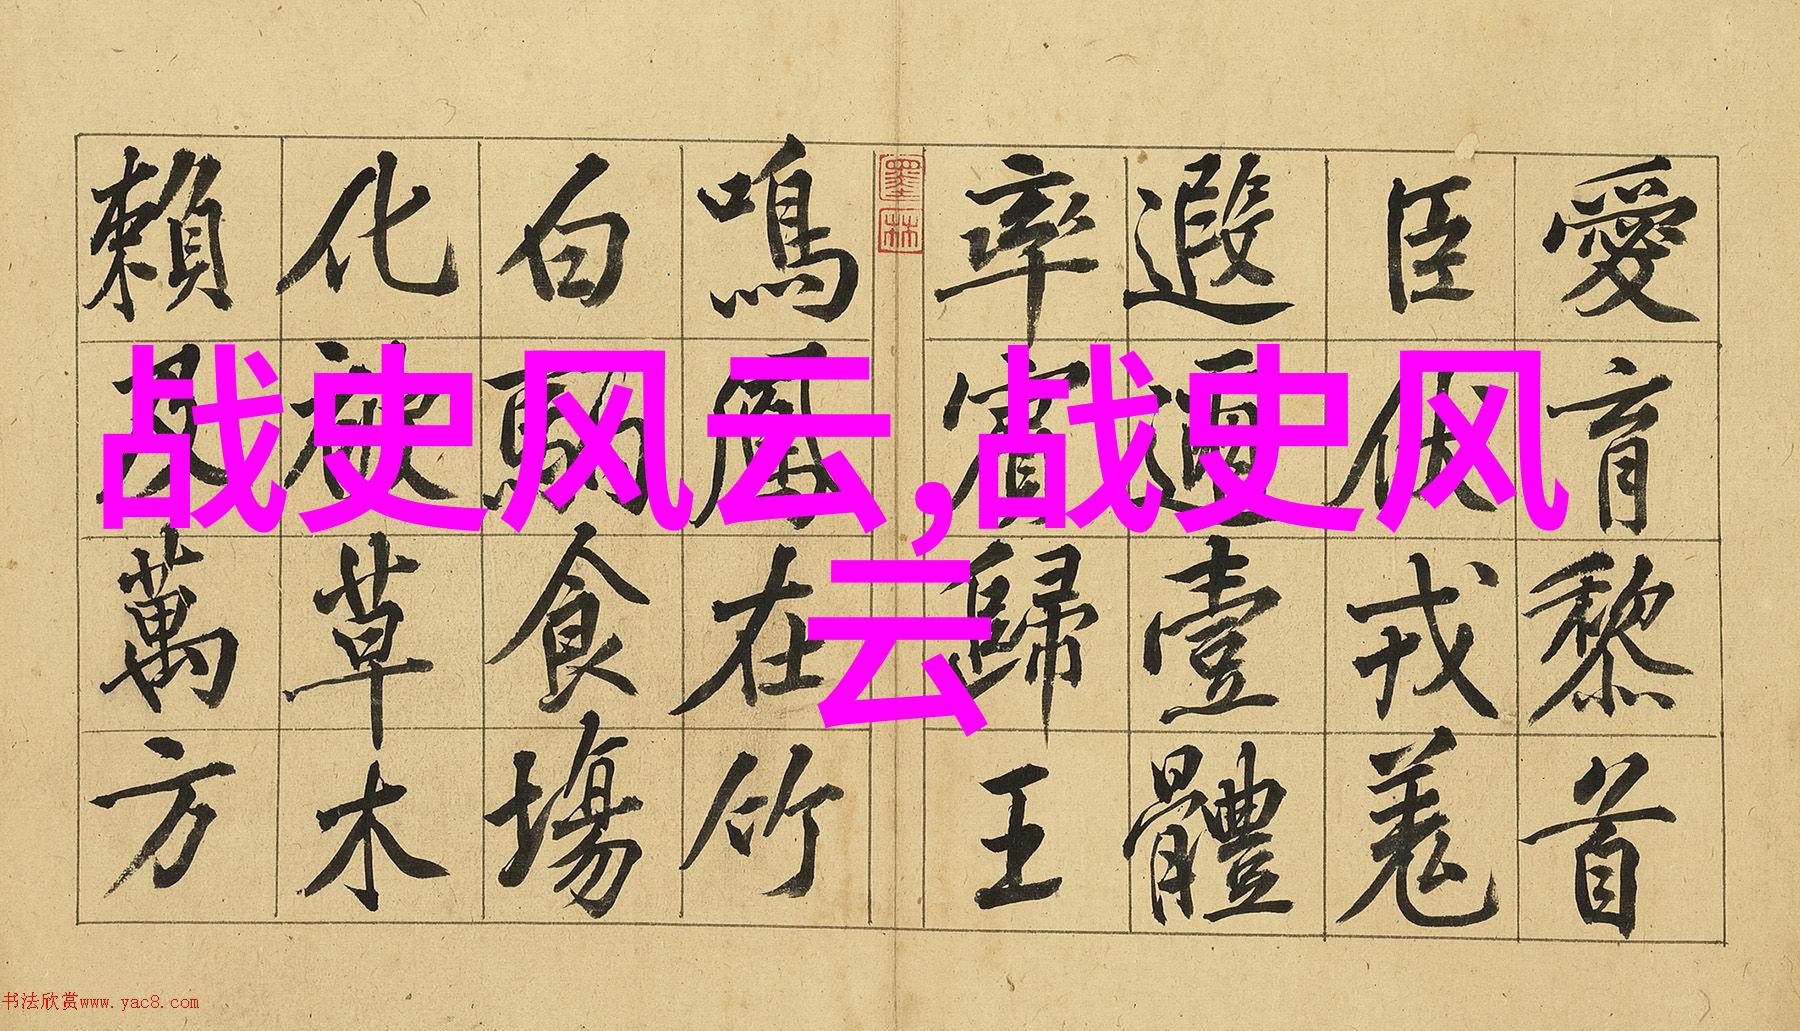 愛育黎首
臣伏戎羗
遐邇壹體
率賓歸王
墨林
鳴鳳在竹
白駒食場
化被草木
賴及萬方
战史风云,战史风
云
书法欣赏www.yac8.com